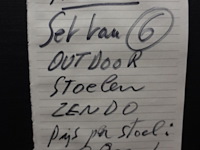 Set van 6
OUTDOOR
Stoelen
ZENDO
Prijs per stoel: